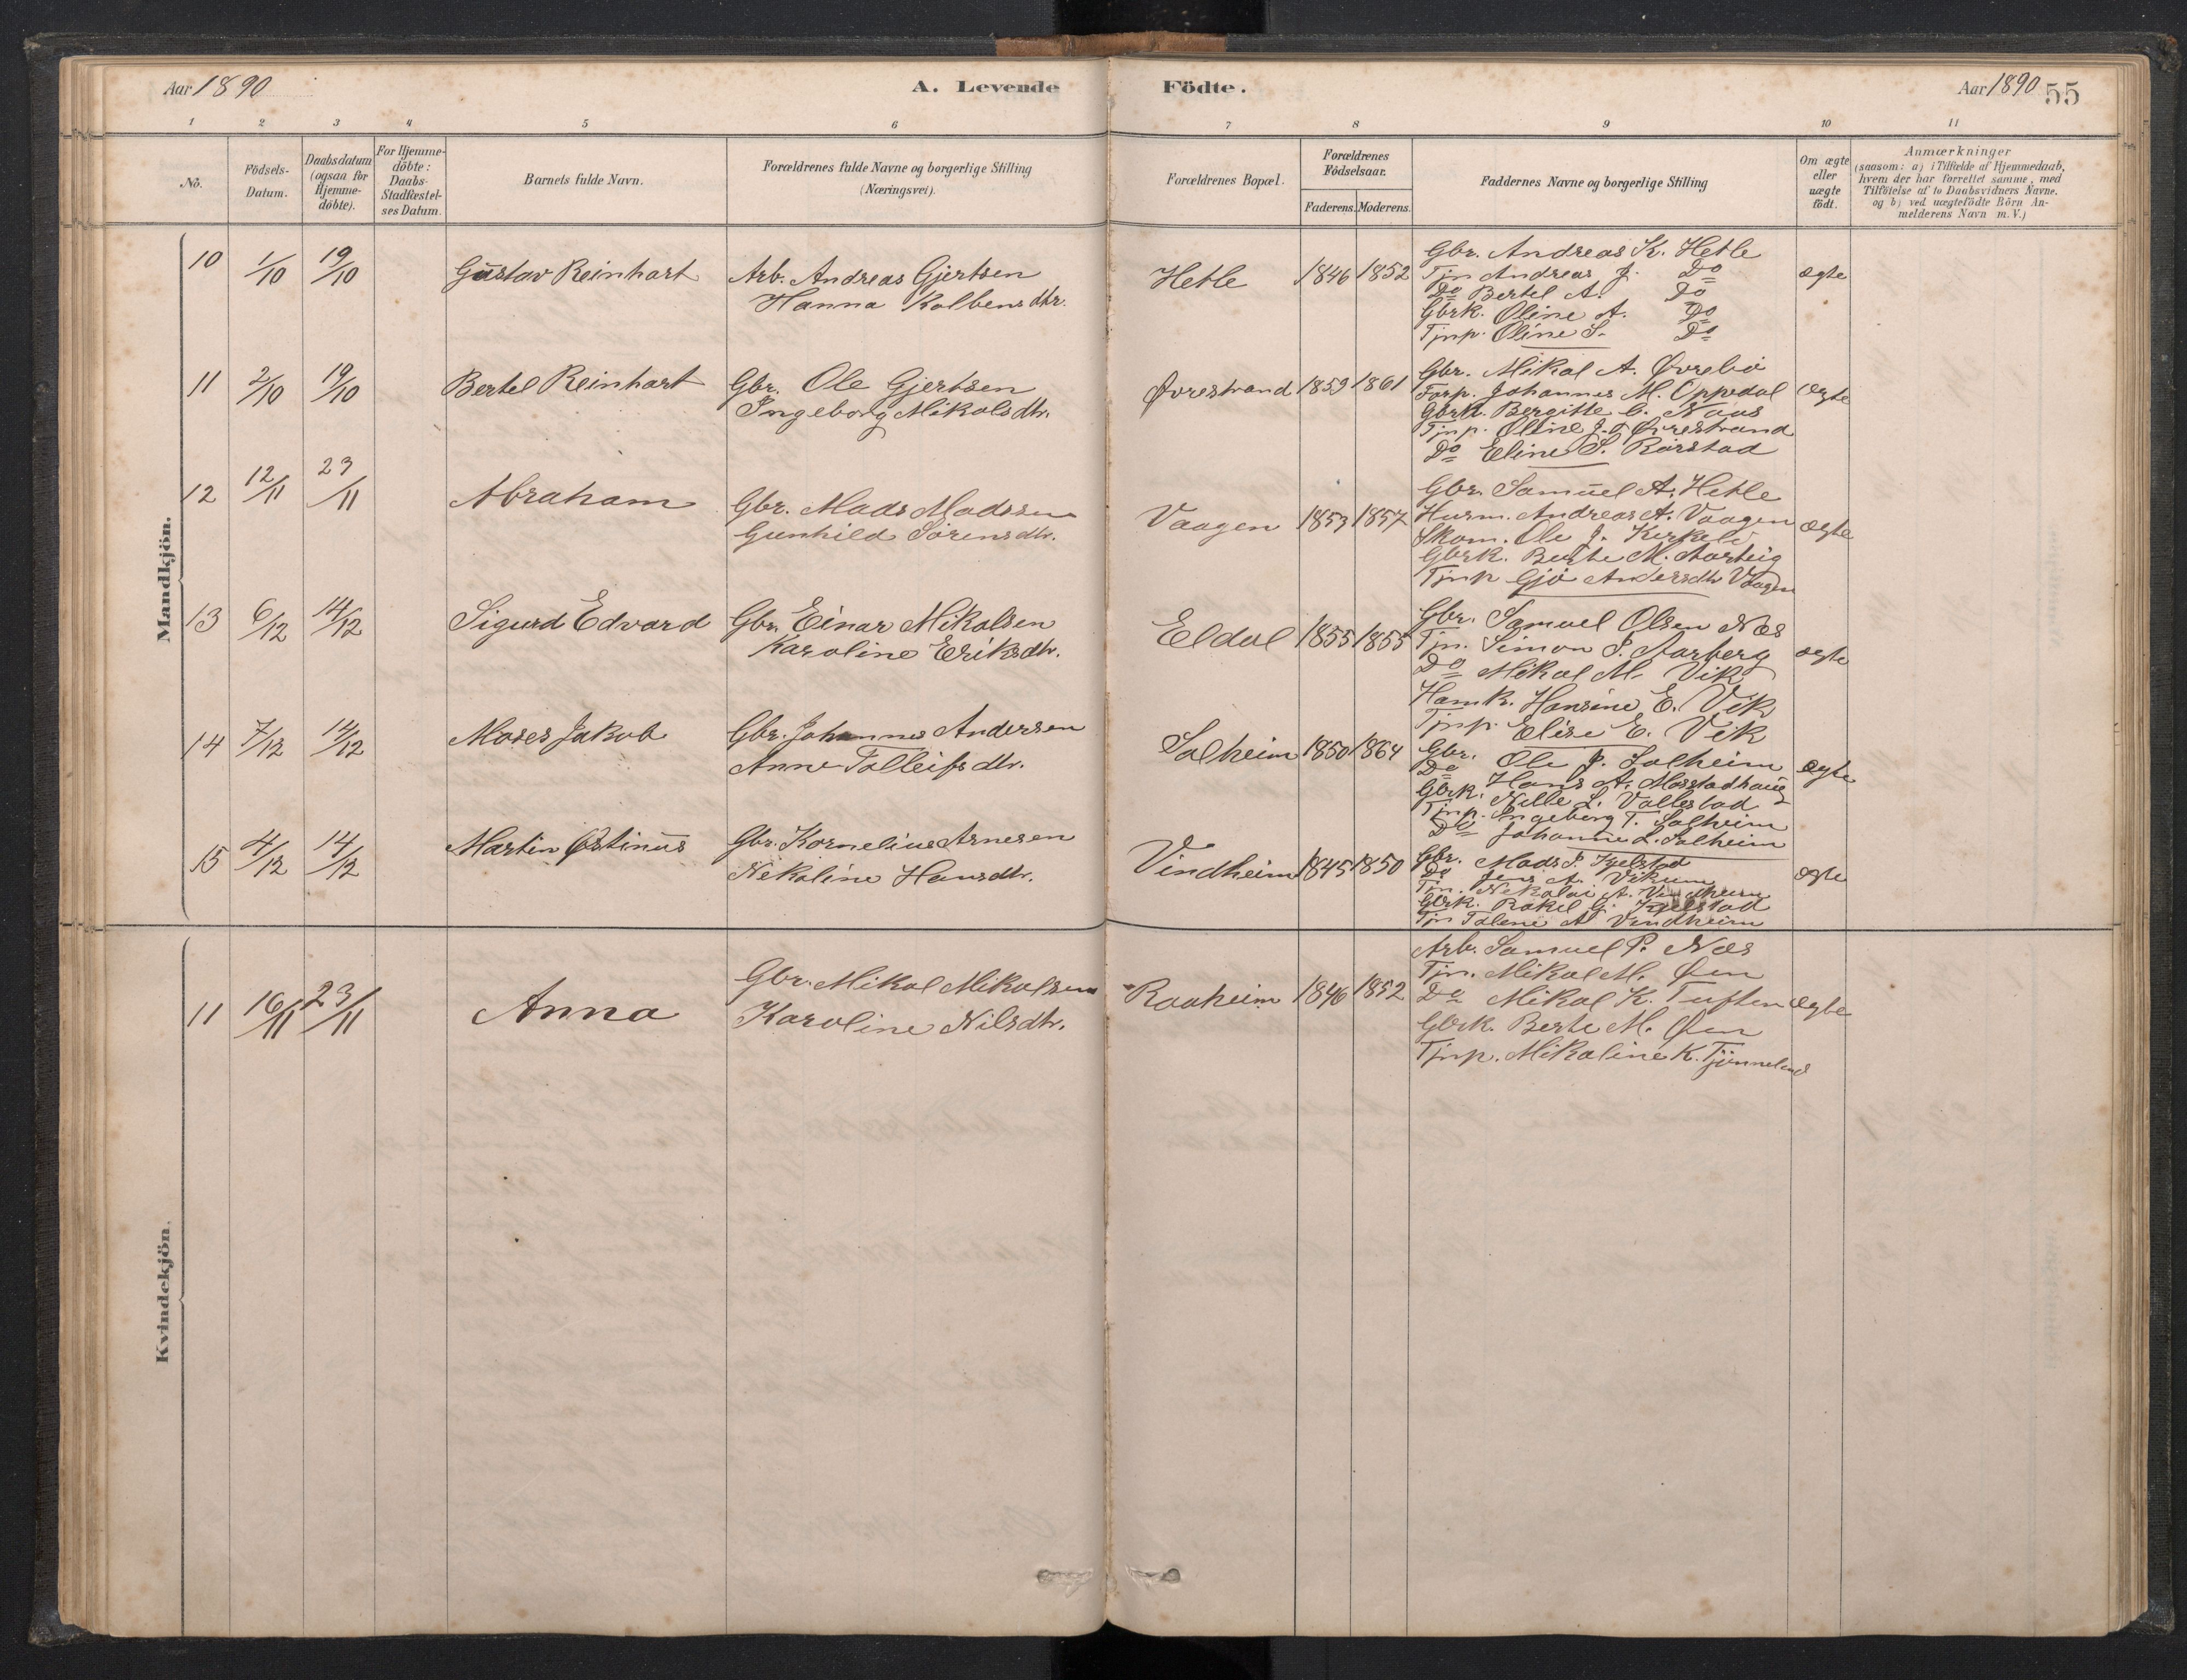 Aar 1890 A. Levende Födte. Aar 1890 55
1 2 3 4 5 6 7 8 9 10 11
No.
Födsels-
Datum.
Daabsdatum
(ogsaa for
Hjemme-
döbte).
For Hjemme-
döbte:
Daabs-
Stadfæstel-
ses Datum.
Barnets fulde Navn.
Forældrenes fulde Navne og borgerlige Stilling
(Næringsvei).
Forældrenes Bopæl.
Forældrenes
Födselsaar.
Faderens. Moderens.
Faddernes Navne og borgerlige Stilling
Om ægte
eller
uægte
födt.
Anmærkninger
(saasom: a) i Tilfælde af Hjemmedaab,
hvem der har forrettet samme, med
Tilföielse af to Daabsvidners Navne.
og b) ved uægtefödte Börn An-
melderens Navn m. V.)
Mandkjön.
10 1/10 19/10 Gustav Reinhart
Arb. Andreas Gjertsen
Hanna Kolbensdtr.
Hetle 1846 1852
Gbr. Andreas K. Hetle
Tjn Andreas J. Do
Do Bertel A. Do
Gbrk. Oline A. Do
Tjnp. Oline S. Do
ægte
11 2/10 19/10 Bertel Reinhart
Gbr. Ole Gjertsen
Ingeborg Mikalsdtr.
Øvrestrand 1859 1861
Gbr. Mikal A. Øvrebø
Forp. Johannes M. Oppedal
Gbrk. Bergitte C. Naas
Tjnp. Oline J. Øvrestrand
Do Eline S. Rørstad
ægte
12 12/11 23/11 Abraham
Gbr. Mads Madssen
Gunhild Sörensdtr.
Vaagen 1853 1857
Gbr. Samuel A. Hetle
Husm. Andreas A. Vaagen
Skom. Ole J.
Gbrk. Berte M. Aarteig
Tjnp Gjø Andersdtr Vaagen
ægte
13 6/12 14/12 Sigurd Edvard
Gbr. Einar Mikalsen
Karoline Eriksdtr.
Eldal 1855 1855
Gbr. Samuel Olsen Næs
Tjn. Simon S. Aarberg
Do Mikal M. Vik
Hamk. Hansine E. Vik
Tjnp. Elise E. Vik
ægte
14 7/12 14/12 Moses Jakob
Gbr. Johannes Andersen
Anne Tolleifsdtr.
Solheim 1850 1864
Gbr. Ole J. Solheim
Do Hans A. Mosstadhaug
Gbrk. Nille L. Vallestad
Tjnp. Ingeborg T. Solheim
Do Johanne L. Solheim
ægte
15 4/12 14/12 Martin Østinus
Gbr. Kornelius Arnesen
Nikoline Hansdtr.
Vindheim 1845 1850
Gbr. Mads P. Kjelstad
Do Jens A. Vikum
Tjn. Nikolai A. Vindheim
Gbrk. Rakel G. Kjelstad
Tjn Talene A Vindheim
ægte
Kvindekjön.
11 16/11 23/11 Anna
Gbr. Mikal Mikalsen
Karoline Nilsdtr.
Raaheim 1846 1852
Arb. Samuel P. Næs
Tjn. Mikal M. Øen
Do Mikal K. Tuften
Gbrk. Berte M. Øen
Tjnp. Mikaline K. Tjønneland
ægte